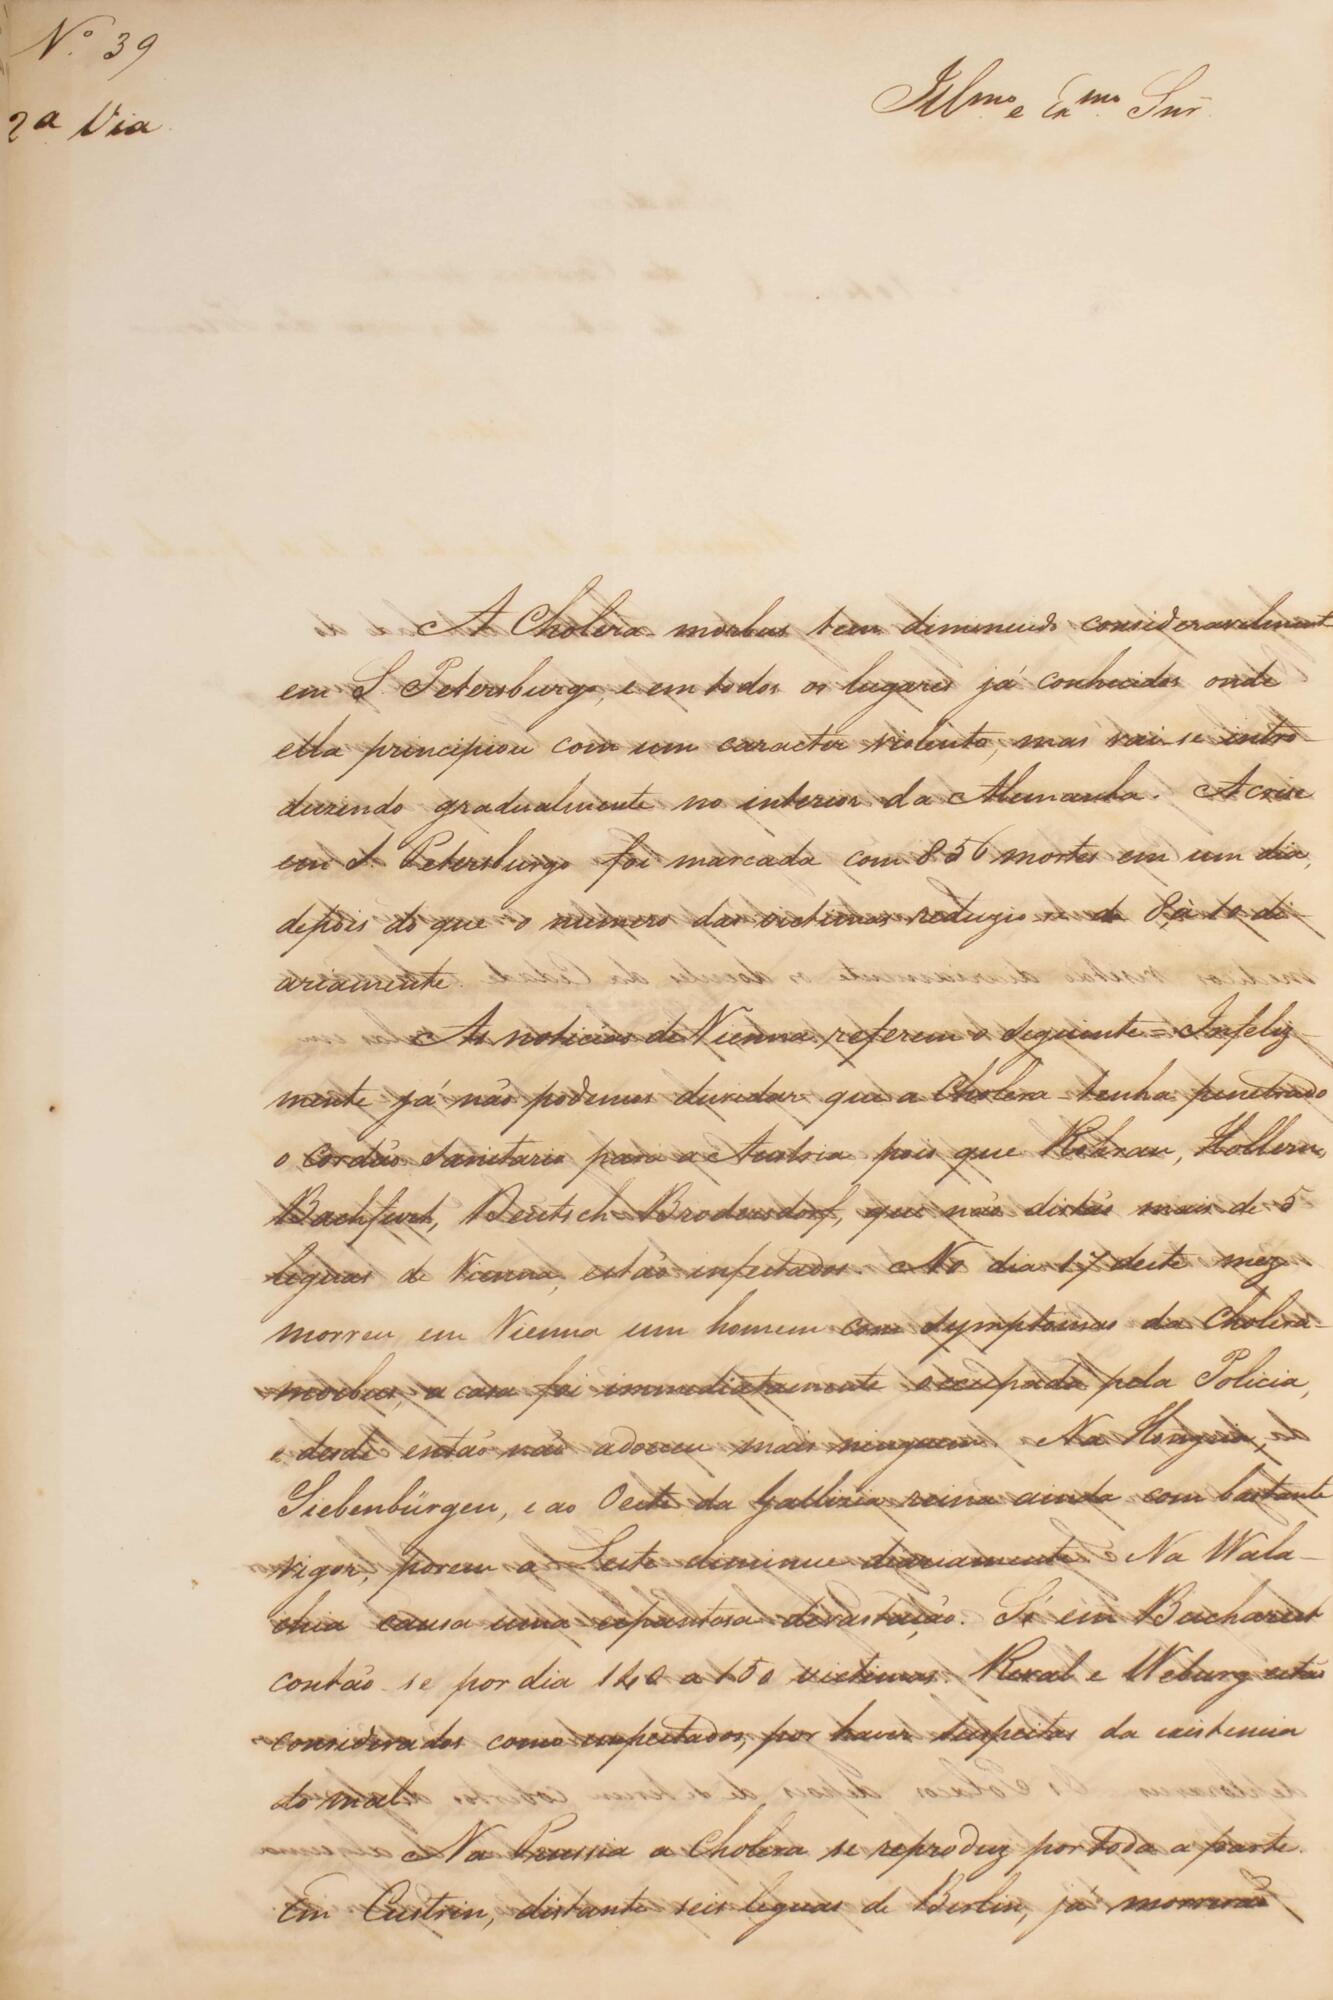 Nº 39
2ª Via
Illmo e Exmo Snr
A Cholera morbus tem diminuido consideravelment
em S. Petersburgo, e em todos os lugares já conhecidos onde
ella principiou com um caracter violento, mas vai-se intro-
duzindo gradualmente no interior da Alemanha. A crise
em S. Petersburgo foi marcada com 856 mortes em um dia,
depois do que o numero das victimas reduzio-se de 8 à 10 di-
ariamente.
As noticias de Vienna referem o seguinte = Infeliz-
mente já não podemos duvidar que a Cholera tenha penetrado
o cordão sanitario para a Austria pois que Rohrau, Hollern,
Bachfurt, Deutsch Brodersdorf, que não distão mais de 5
leguas de Vienna, estão infectados. No dia 17 deste mez
morreu em Vienna um homem com symptomas da Cholera-
morbus, a casa foi immediatamente occupada pela Policia,
e desde então não adoeceu mais ninguem. Na Hungria,
Siebenbürgen, e ao Oeste da Gallizia reina ainda com bastante
vigor, porem a Leste diminue diariamente. Na Wala-
chia causa uma espantosa devastação. Só em Bucharest
contão-se por dia 140 a 150 victimas. Reval e Weburg estão
considerados como infectados, por haver suspeitas da existencia
do mal.
Na Prussia a Cholera se reproduz por toda a parte.
Em Custrin, distante seis leguas de Berlin, já morrerão